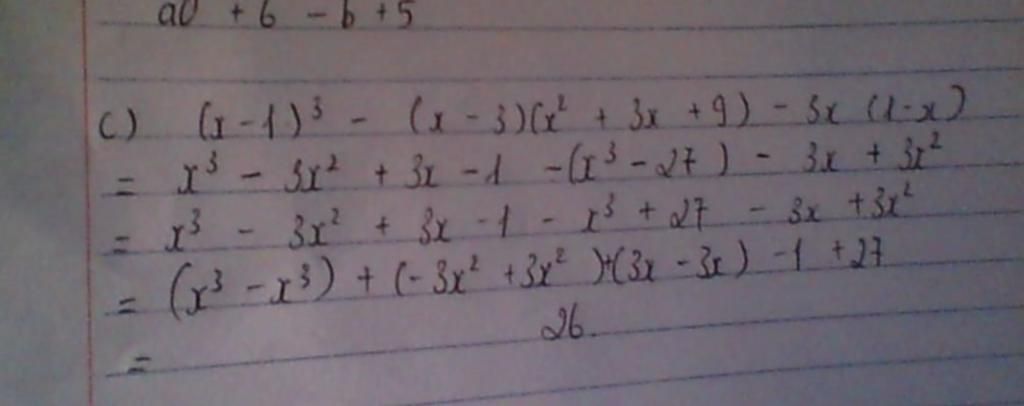 ab + 6 - b + 5
c) (x - 1)³ - (x - 3)(x² + 3x + 9) - 3x (1 - x)
= x³ - 3x² + 3x - 1 - (x³ - 27) - 3x + 3x²
= x³ - 3x² + 3x - 1 - x³ + 27 - 3x + 3x²
= (x³ - x³) + (- 3x² + 3x²) + (3x - 3x) - 1 + 27
= 26.